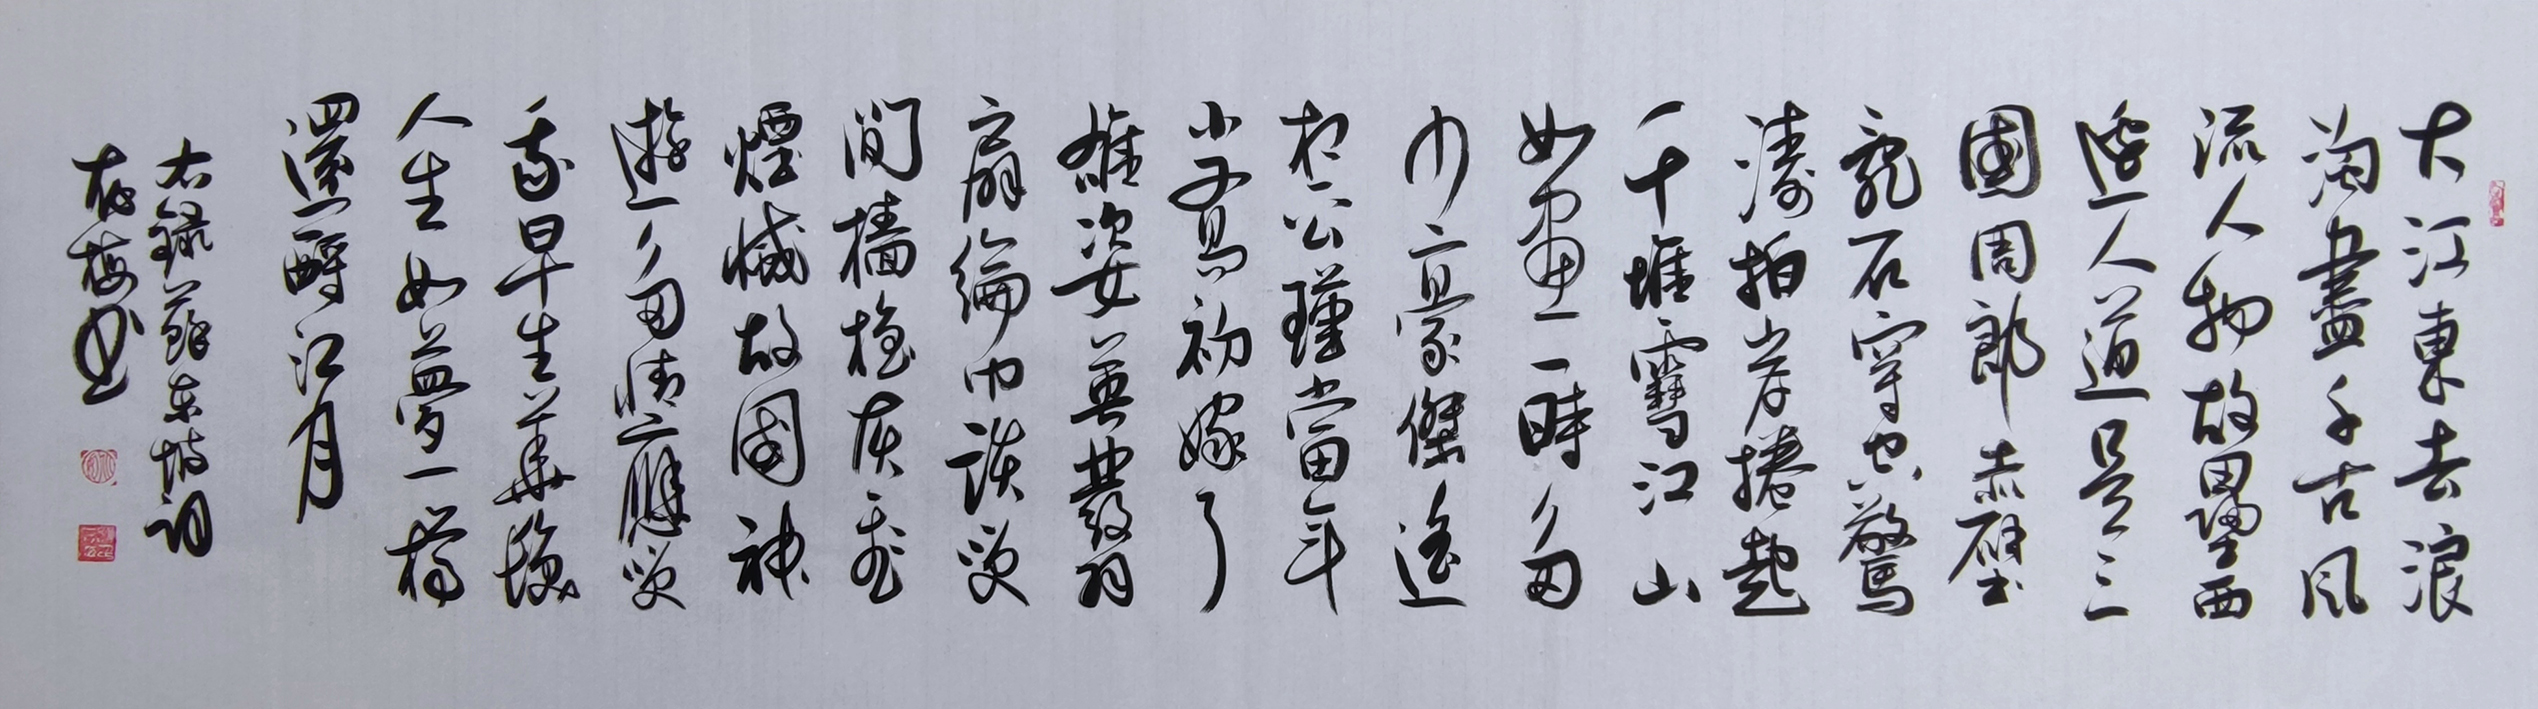 大江東去浪
淘盡千古風
流人物故壘西
邊人道是三
國周郎赤壁
亂石穿空驚
濤拍岸捲起
千堆雪江山
如畫一時多
少豪傑遙
想公瑾當年
小喬初嫁了
雄姿英發羽
扇綸巾談笑
間檣櫓灰飛
煙滅故國神
遊多情應笑
我早生華髮
人生如夢一樽
還酹江月
右錄蘇東坡詞
梅書